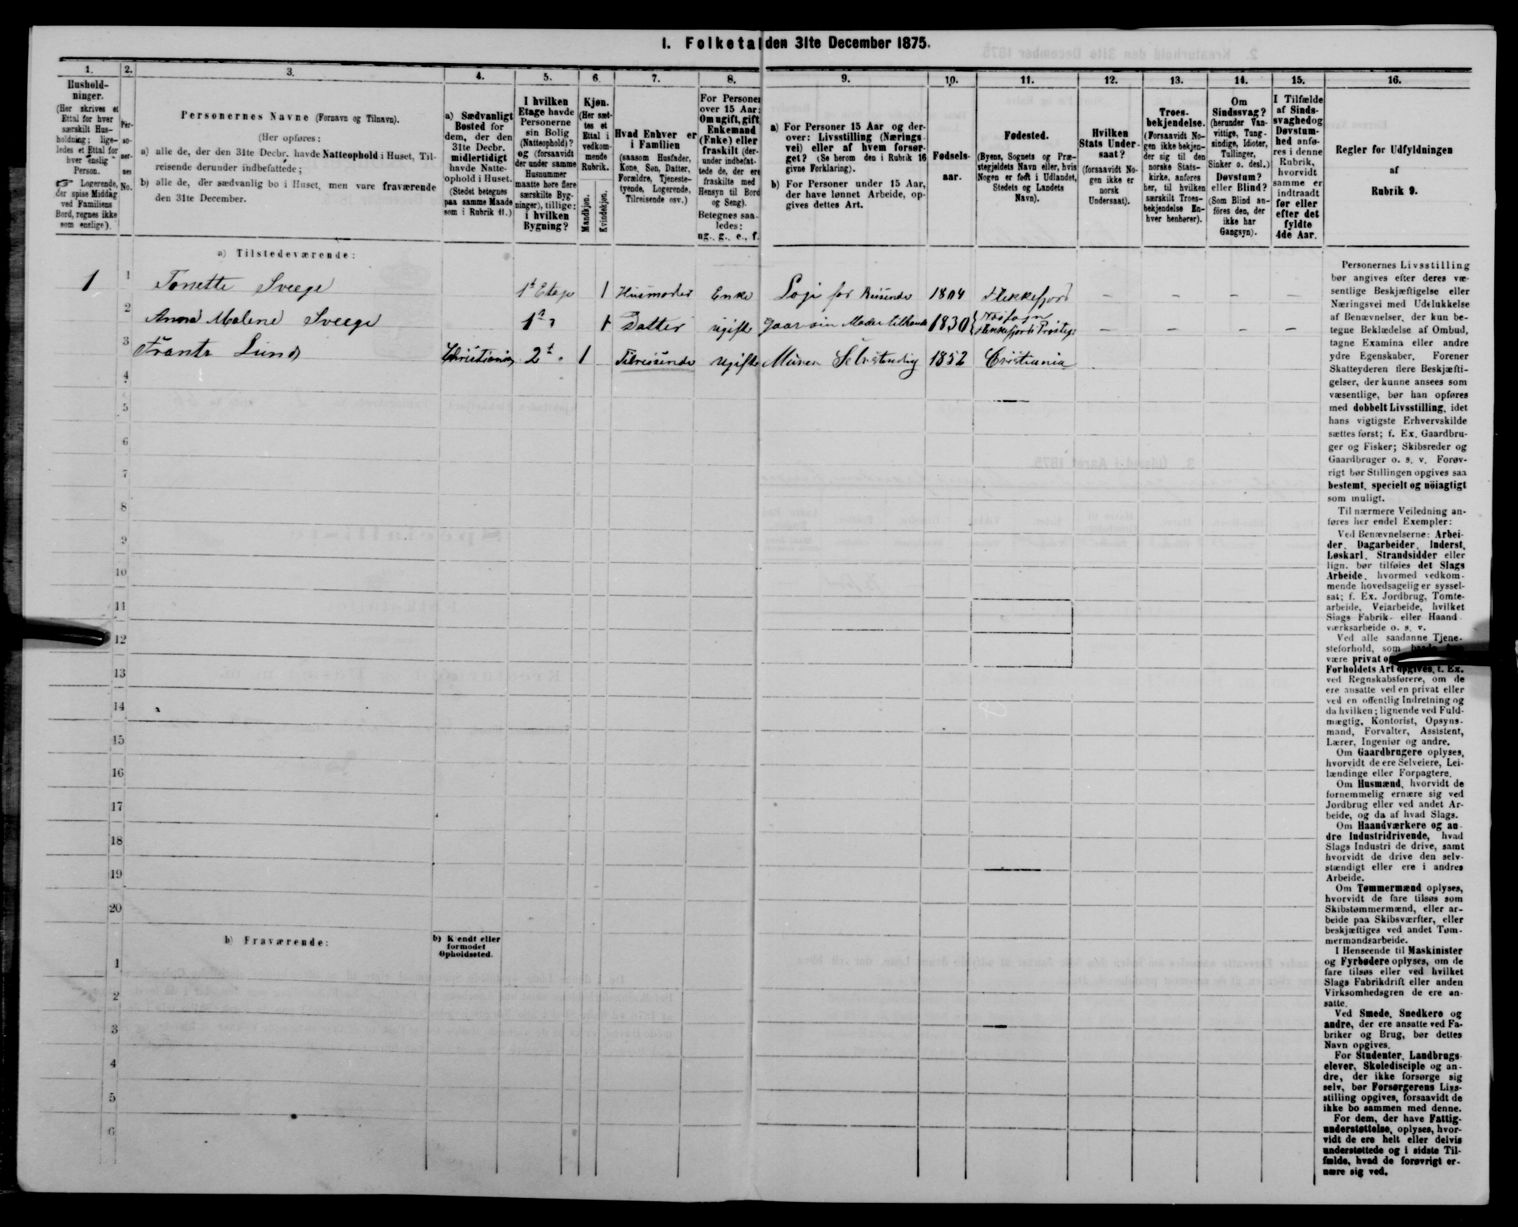 1. Folketal den 31te December 1875.
1. 2. 3. 4. 5. 6. 7. 8. 9. 10. 11. 12. 13. 14. 15. 16.
Hushold-
ninger.
(Her skrives et
Ettal for hver
særskilt Hus-
holdning; lige-
ledes et Ettal for
hver enslig
Person.
☞ Logerende,
der spise Middag
ved Familiens
Bord, regnes ikke
som enslige).
Per-
so-
ner-
nes
No.
Personernes Navne (Fornavn og Tilnavn).
(Her opføres:
a) alle de, der den 31te Decbr. havde Natteophold i Huset, Til-
reisende derunder indbefattede;
b) alle de, der sædvanlig bo i Huset, men vare fraværende
den 31te December.
a) Sædvanligt
Bosted for
dem, der den
31te Decbr.
midlertidigt
havde Natte-
ophold i Huset.
(Stedet betegnes
paa samme Maade
som i Rubrik 11.)
I hvilken
Etage havde
Personerne
sin Bolig
(Natteophold)?
og (forsaavidt
der under samme
Husnummer
maatte høre flere
særskilte Byg-
ninger), tillige:
i hvilken
Bygning?
Kjøn.
(Her sæt-
tes et
Ettal i
vedkom-
mende
Rubrik.
Mandkjøn.
Kvindekjøn.
Hvad Enhver er
i Familien
(saasom Husfader,
Kone, Søn, Datter,
Forældre, Tjeneste-
tyende, Logerende,
Tilreisende osv.)
For Personer
over 15 Aar:
Om ugift, gift,
Enkemand
(Enke) eller
fraskilt (der-
under indbefat-
tede de, der ere
fraskilte med
Hensyn til Bord
og Seng).
Betegnes saa-
ledes:
ug., g., e., f.
a) For Personer 15 Aar og der-
over: Livsstilling (Nærings-
vei) eller af hvem forsør-
get? (Se herom den i Rubrik 16
givne Forklaring).
b) For Personer under 15 Aar,
der have lønnet Arbeide, op-
gives dettes Art.
Fødsels-
aar.
Fødested.
(Byens, Sognets og Præ-
stegjeldets Navn eller, hvis
Nogen er født i Udlandet,
Stedets og Landets
Navn).
Hvilken
Stats Under-
saat?
(forsaavidt No-
gen ikke er
norsk
Undersaat).
Troes-
bekjendelse.
(Forsaavidt No-
gen ikke bekjen-
der sig til den
norske Stats-
kirke, anføres
her, til hvilken
særskilt Troes-
bekjendelse En-
hver henhører).
Om
Sindssvag?
(herunder Van-
vittige, Tung-
sindige, Idioter,
Tullinger,
Sinker o. desl.)
Døvstum?
eller Blind?
(Som Blind an-
føres den, der
ikke har
Gangsyn).
I Tilfælde
af Sinds-
svaghed og
Døvstum-
hed anfø-
res i denne
Rubrik,
hvorvidt
samme er
indtraadt
før eller
efter det
fyldte
4de Aar.
Regler for Udfyldningen
af
Rubrik 9.
a) Tilstedeværende:
1 1 Tonette Sveege 1ste Etage 1 Husmoder Enke Logi for Reisende 1804 Flekkefjord
2 Anna Malene Sveege 1 Datter ugifte 1830
3 Frants Lund Christiania 2 1 Tilreisende Ugifte Murer Selvstændig 1852 Cristiania
4
5
6
7
8
9
10
11
12
13
14
15
16
17
18
19
20
b) Fraværende:
b) Kendt eller
formodet
Opholdssted.
1
2
3
4
5
6
Personernes Livsstilling
bør angives efter deres væ-
sentlige Beskjæftigelse eller
Næringsvei med Udelukkelse
af Benævnelser, der kun be-
tegne Beklædelse af Ombud,
tagne Examina eller andre
ydre Egenskaber. Forener
Skatteyderen flere Beskjæfti-
gelser, der kunne ansees som
væsentlige, bør han opføres
med dobbelt Livsstilling, idet
hans vigtigste Erhvervskilde
sættes først; f. Ex. Gaardbru-
ger og Fisker; Skibsreder og
Gaardbruger o. s. v. Forøv-
rigt bør Stillingen opgives saa
bestemt, specielt og nöiagtigt
som muligt.
Til nærmere Veiledning an-
føres her endel Exempler:
Ved Benævnelserne: Arbei-
der, Dagarbeider, Inderst,
Løskarl, Strandsidder eller
lign. bør tilføies det Slags
Arbeide, hvormed vedkom-
mende hovedsagelig er syssel-
sat; f. Ex. Jordbrug, Tomte-
arbeide, Veiarbeide, hvilket
Slags Fabrik- eller Haand-
værksarbeide o. s. v.
Ved alle saadanne Tjene-
steforhold, som
være privat
Forholdets Art opgives, f. Ex.
ved Regnskabsførere, om de
ere ansatte ved en privat eller
ved en offentlig Indretning og
da hvilken; lignende ved Fuld-
mægtig, Kontorist, Opsyns-
mand, Forvalter, Assistent,
Lærer, Ingeniør og andre.
Om Gaardbrugere oplyses,
hvorvidt de ere Selveiere, Lei-
lændinge eller Forpagtere.
Om Husmænd, hvorvidt de
fornemmelig ernære sig ved
Jordbrug eller ved andet Ar-
beide, og da af hvad Slags.
Om Haandværkere og an-
dre Industridrivende, hvad
Slags Industri de drive, samt
hvorvidt de drive den selv-
stændigt eller ere i andres
Arbeide.
Om Tømmermænd oplyses,
hvorvidt de fare tilsøs som
Skibstømmermænd, eller ar-
beide paa Skibsværfter, eller
beskjæftiges ved andet Tøm-
mermandsarbeide.
I Henseende til Maskinister
og Fyrbødere oplyses, om de
fare tilsøs eller ved hvilket
Slags Fabrikdrift eller anden
Virksomhedsgren de ere an-
satte.
Ved Smede, Snedkere og
andre, der ere ansatte ved Fa-
briker og Brug, bør dettes
Navn opgives.
For Studenter, Landbrugs-
elever, Skoledisciple og an-
dre, der ikke forsørge sig
selv, bør Forsørgerens Livs-
stilling opgives, forsaavidt de
ikke bo sammen med denne.
For dem, der have Fattig-
understøttelse, oplyses, hvor-
vidt de ere helt eller delvis
understøttede og i sidste Til-
fælde, hvad de forøvrigt er-
nære sig ved.